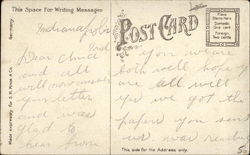 This Space For Writing Messages
POST CARD
Place
Domestic
One cent
Foreign
Two cents
Germany.
Made expressly for S. H. Knox & Co.
Indianapolis
Ind
Dear
and all
will
your letter
and was
glad to
hear from
you we are
both well hoping
are all well
yes we got the
papers you sent
us was
This side for the Address only.